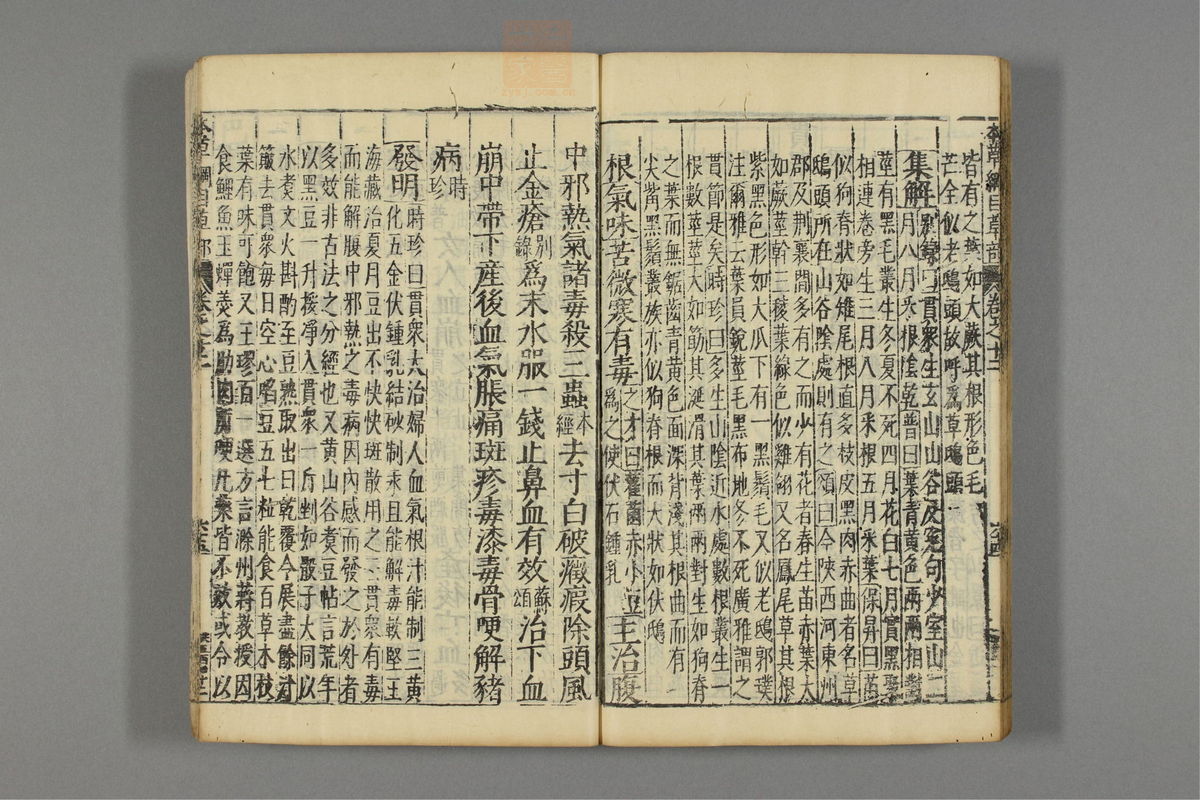 皆有之葉如大蕨其根形色毛
芒全似老鴟頭故呼爲草鴟頭
集解别錄曰貫衆生玄山山谷及冤句少室山二
月八月采根陰乾普曰葉青黄色兩兩相對
莖有黑毛叢生冬夏不死四月花白七月實黑聚
相連卷旁生三月八月采根五月采葉保昇曰苗
似狗脊狀如雉尾根直多枝皮黑肉赤曲者名草
鴟頭所在山谷陰處則有之頌曰今陝西河東州
郡及荆襄間多有之而少有花者春生苗赤葉大
如蕨莖幹三稜葉綠色似雞翎又名鳳尾草其根
紫黑色形如大爪下有一黑鬚毛又似老鴟郭璞
注爾雅云葉員銳莖毛黑布地冬不死廣雅謂之
貫節是矣時珍曰多生山陰近水處數根叢生一
根數莖莖大如筯其涎滑其葉兩兩對生如狗脊
之葉而無鋸齒青黄色面深背淺其根曲而有
尖觜黑鬚叢族亦似狗脊根而大狀如伏鴟
根氣味苦微寒有毒之才曰雚菌赤小豆爲之使伏石鍾乳主治腹
中邪熱氣諸毒殺三蟲本經去寸白破癥瘕除頭風
止金瘡别錄爲末水服一錢止鼻血有效蘇頌治下血
崩中帶下產後血氣脹痛斑疹毒漆毒骨哽解豬
病時珍
發明時珍曰貫衆大治婦人血氣根汁能制三黄
化五金伏鍾乳結砂制汞且能解毒軟堅王
海藏治夏月豆出不快快斑散用之云貫衆有毒
而能解腹中邪熱之毒病因内感而發之於外者
多效非古法之分經也又黄山谷煮豆帖言荒年
以黑豆一升挼凈入貫衆一斤剉如骰子大同以
水煮文火斟酌至豆熟取出日乾覆令展盡餘汁
簸去貫衆每日空心啗豆五七粒能食百草木枝
葉有味可飽又王璆百一選方言滁州蔣教授因
食鯉魚玉蟬羮爲肋肉所哽凡藥皆不效或令以